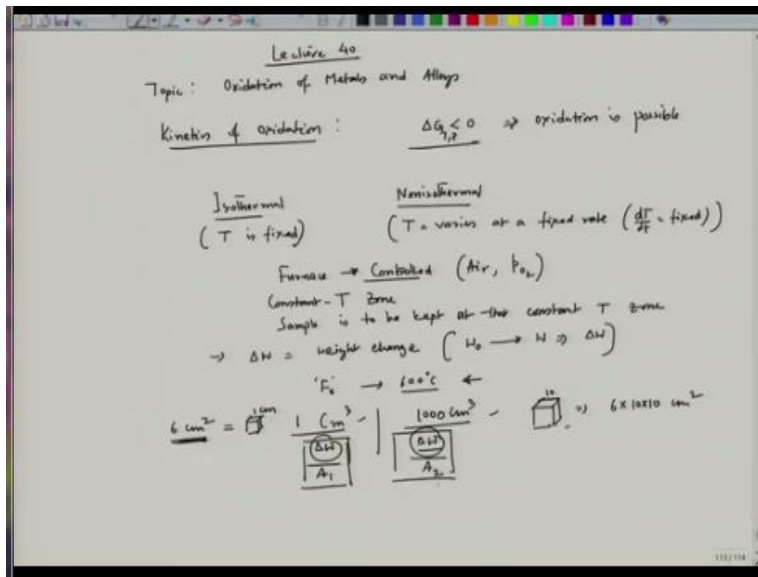 Lecture 40
Topic : Oxidation of Metals and Alloys
Kinetics of oxidation : ΔG_T,P < 0 ⇒ oxidation is possible
Isothermal Nonisothermal
( T is fixed ) ( T = varies at a fixed rate ( dT/dt = fixed ) )
Furnace → Controlled ( Air, P_O2 )
Constant-T Zone
Sample is to be kept at that constant T zone
→ ΔW = weight change ( W₀ → W ⇒ ΔW )
'Fe' → 600°C ←
6 cm² = 1 cm 1 Cm³ - | 1000 Cm³ - 10 ⇒ 6 x 10x10 cm²
ΔW/A₁ ΔW/A₂